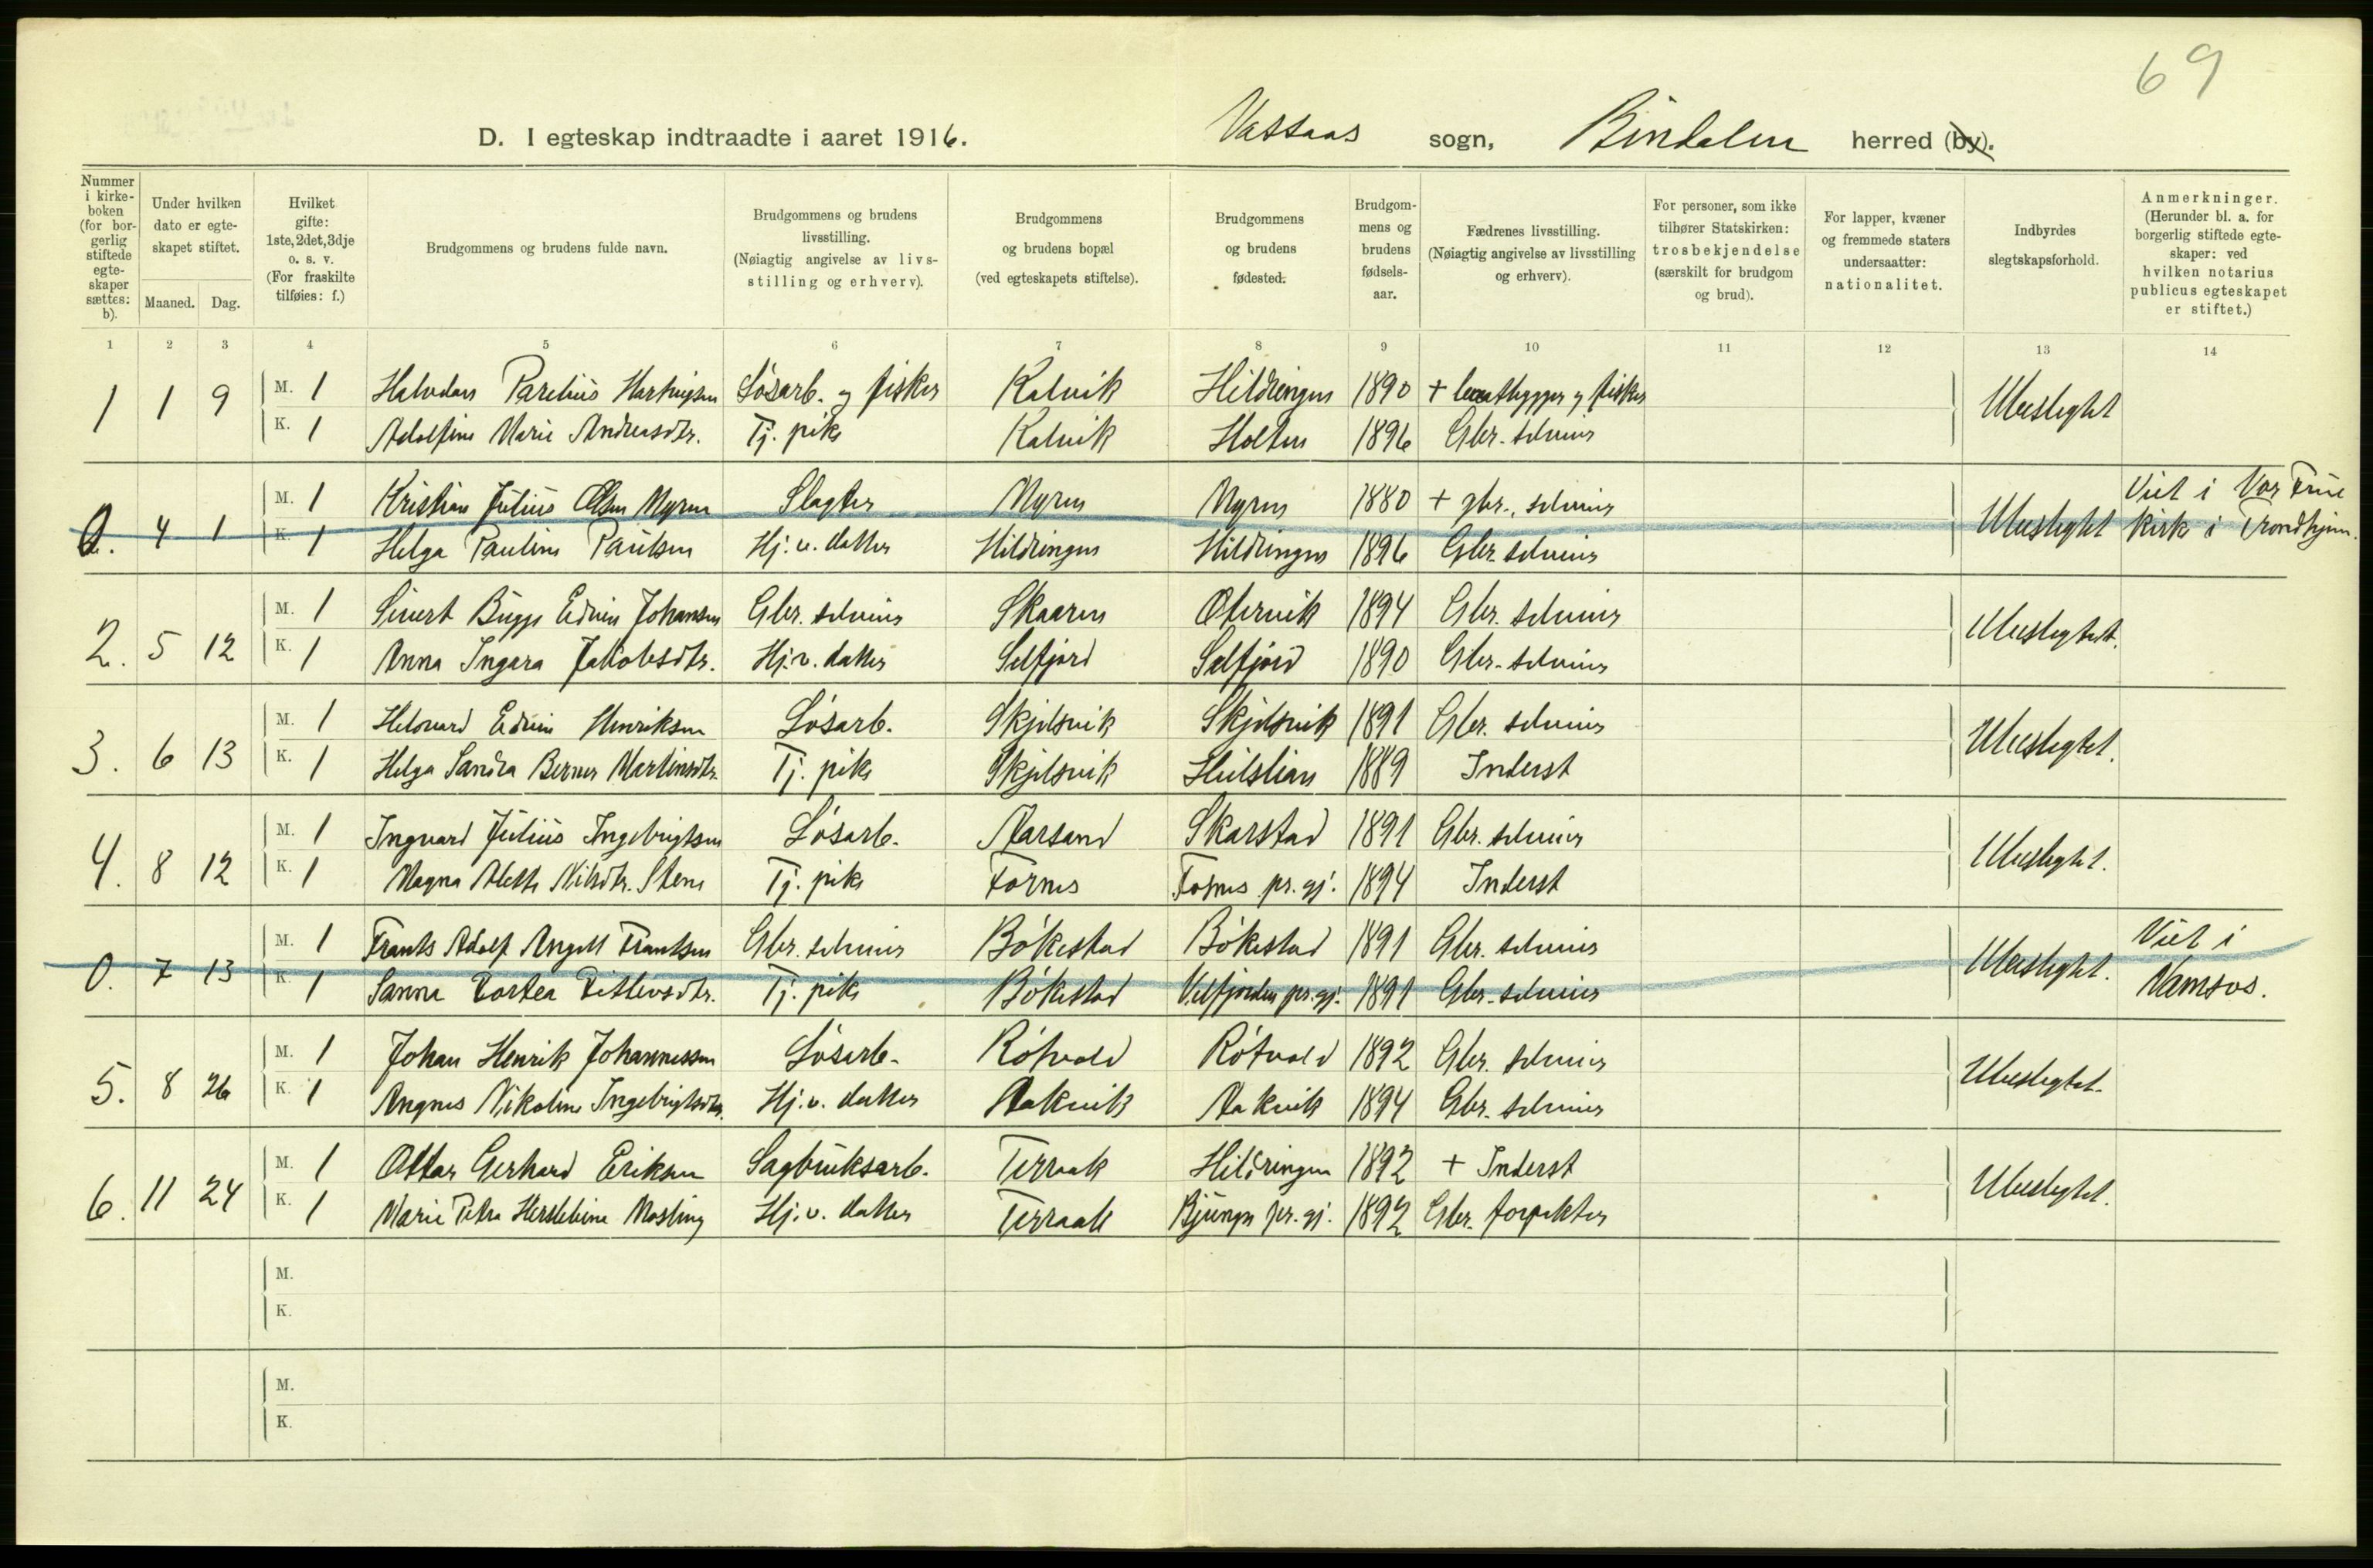 69
D. I egteskap indtraadte i aaret 1916. Vassaas sogn, Bindalen herred (by).
Nummer i kirke-boken (for bor-gerlig stiftede egte-skaper sættes: b).
Under hvilken dato er egte-skapet stiftet.
Maaned. Dag.
Hvilket gifte: 1ste, 2det, 3dje o. s. v. (For fraskilte tilføies: f.)
Brudgommens og brudens fulde navn.
Brudgommens og brudens livsstilling. (Nøiagtig angivelse av livs-stilling og erhverv).
Brudgommens og brudens bopæl (ved egteskapets stiftelse).
Brudgommens og brudens fødested.
Brudgom-mens og brudens fødsels-aar.
Fædrenes livsstilling. (Nøiagtig angivelse av livsstilling og erhverv).
For personer, som ikke tilhører Statskirken: trosbekjendelse (særskilt for brudgom og brud).
For lapper, kvæner og fremmede staters undersaatter: nationalitet.
Indbyrdes slegtskapsforhold.
Anmerkninger. (Herunder bl. a. for borgerlig stiftede egte-skaper: ved hvilken notarius publicus egteskapet er stiftet.)
1 2 3 4 5 6 7 8 9 10 11 12 13 14
1 1 9 M. 1 Halvdan Parelius Hartvigsen Løsarb. og fisker Kalvik Hildringen 1890 + og fisker Ubeslegtet
K. 1 Adolfine Marie Andreasdtr. Tj. pike Kalvik Holten 1896 Gbr. selveier
0. 4 1 M. 1 Kristian Julius Olsen Myren Slagter Myren Myren 1880 + gbr., selveier Ubeslegtet Viet i Vor Frue kirke i Trondhjem.
K. 1 Helga Pauline Paulsen Hj. v. datter Hildringen Hildringen 1896 Gbr. selveier
2. 5 12 M. 1 Sivert Bugge Edvin Johansen Gbr. selveier Skaaren Otervik 1894 Gbr. selveier Ubeslegtet.
K. 1 Anna Ingara Jakobsdtr. Hj. v. datter Selfjord Selfjord 1890 Gbr. selveier
3. 6 13 M. 1 Edvin Henriksen Løsarb. Skjelsvik Skjelsvik 1891 Gbr. selveier Ubeslegtet.
K. 1 Helga Sandra Martinsdtr. Tj. pike Skjelsvik 1889 Inderst
4. 8 12 M. 1 Ingvard Julius Ingebrigtsen Løsarb. Aarsand Skarstad 1891 Gbr. selveier Ubeslegtet.
K. 1 Magna Alette Nilsdtr. Stene Tj. pike Fornes Fosnes pr. gj. 1894 Inderst
0. 7 13 M. 1 Frants Adolf Angell Frantsen Gbr. selveier Bøkestad Bøkestad 1891 Gbr. selveier Ubeslegtet. Viet i Namsos.
K. 1 Sanna Dortea Ditlevsdtr. Tj. pike Bøkestad Velfjorden pr. gj. 1891 Gbr. selveier
5. 8 26 M. 1 Johan Henrik Johannessen Løsarb. Røtvold Røtvold 1892 Gbr. selveier Ubeslegtet.
K. 1 Angnes Nikoline Ingebrigtsdtr. Hj. v. datter Aakvik Aakvik 1894 Gbr. selveier
6. 11 24 M. 1 Ottar Gerhard Eriksen Sagbruksarb. Terraak Hildringen 1892 + Inderst Ubeslegtet.
K. 1 Marie Petra Herslebine Mosling Hj. v. datter Terraak Bjungn pr. gj. 1892 Gbr. forpakter
M.
K.
M.
K.